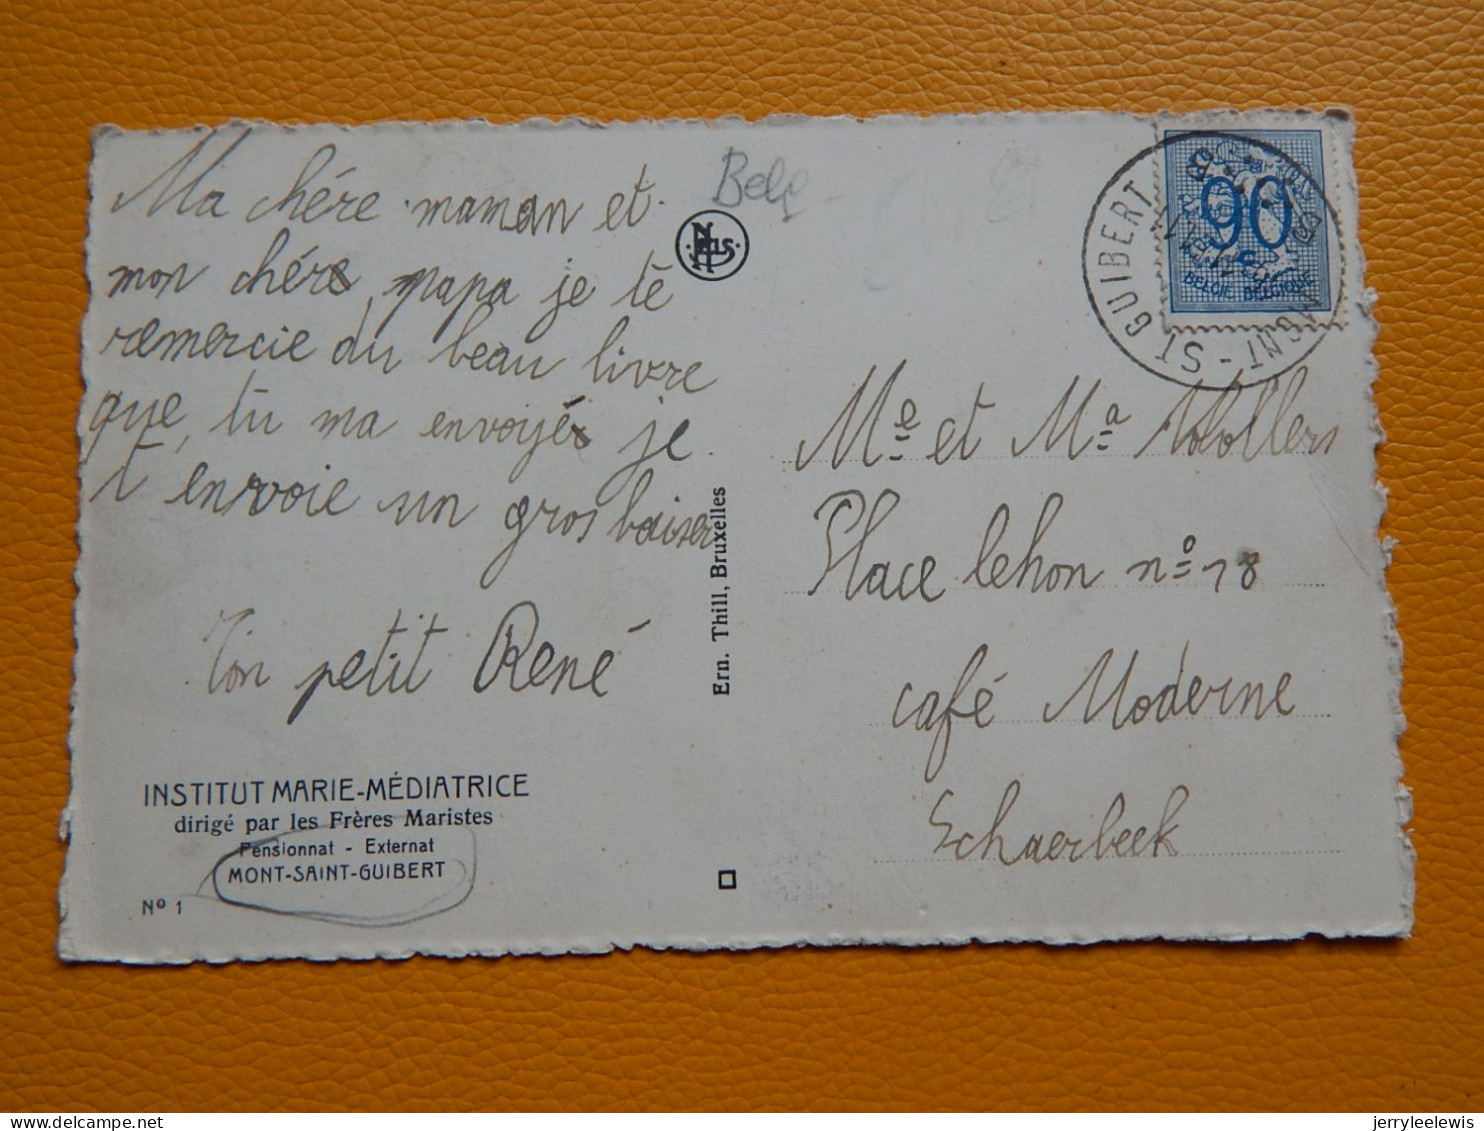 Ma chére maman et
mon chére papa je te
remercie du beau livre
que tu ma envoyés je
t envoie un gros baiser
Ton petit René
INSTITUT MARIE-MÉDIATRICE
dirigé par les Frères Maristes
Pensionnat - Externat
MONT-SAINT-GUIBERT
Nº 1
Belg
NELS
Ern. Thill, Bruxelles
MONT-ST GUIBERT
90
c
BELGIE BELGIQUE
Me et Ma
Place Lehon nº 18
café Moderne
Schaerbeek
jerryleelewis